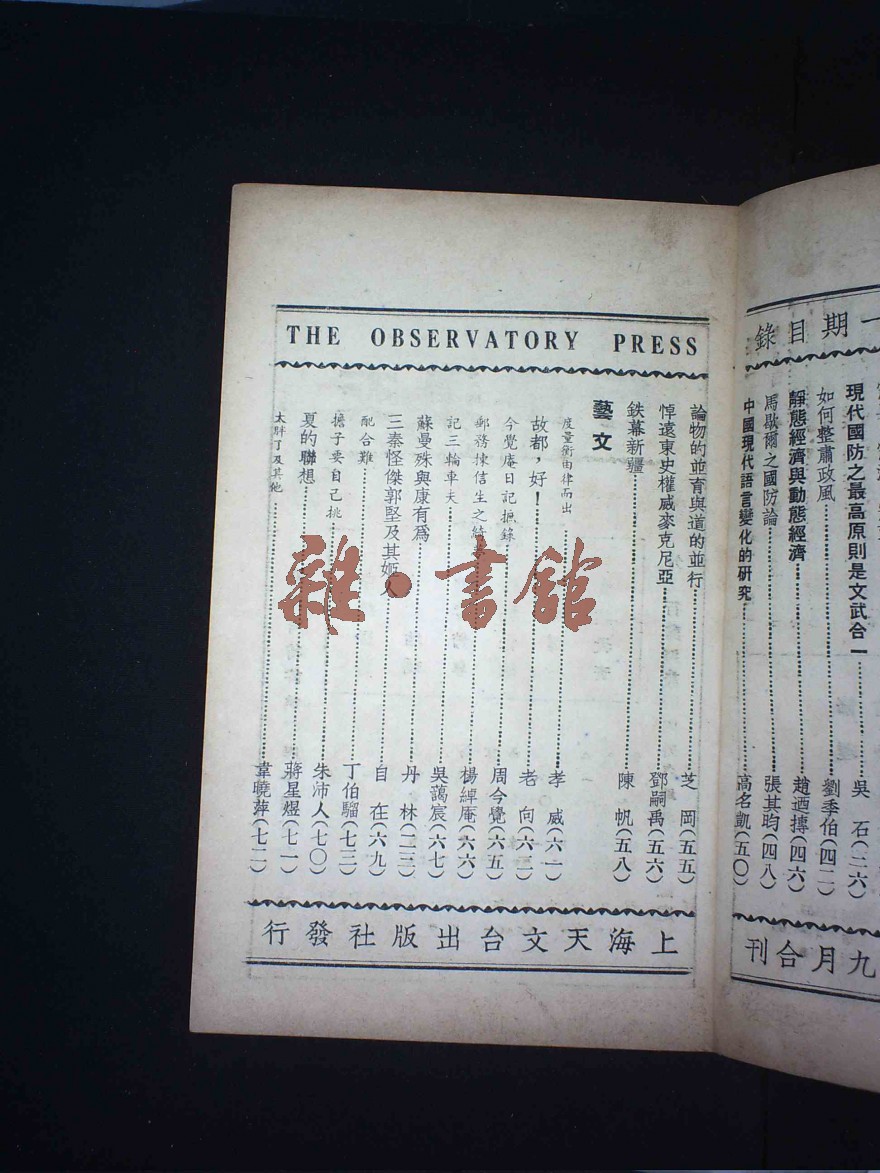 一期目錄
現代國防之最高原則是文武合一 吳石(三六)
如何整肅政風 劉季伯(四二)
靜態經濟與動態經濟 趙迺摶(四六)
馬歇爾之國防論 張其昀(四八)
中國現代語言變化的研究 高名凱(五〇)
九月合刊
THE OBSERVATORY PRESS
論物的並育與道的並行 芝岡(五五)
悼遠東史權威麥克尼亞 鄧嗣禹(五六)
鉄幕新疆 陳帆(五八)
藝文
度量衡由律而出 孝威(六一)
故都,好! 老向(六二)
今覺庵日記摭錄 周今覺(六五)
郵務揀信生之結 楊綽庵(六六)
記三輪車夫 吳藹宸(六七)
蘇曼殊與康有為 丹林(二三)
三秦怪傑郭堅及其姬人 自在(六九)
配合難 丁伯騮(七三)
擔子要自己挑 朱沛人(七〇)
夏的聯想 蔣星煜(七一)
太胖了及其他 韋曉萍(七二)
上海天文台出版社發行
雜·書館